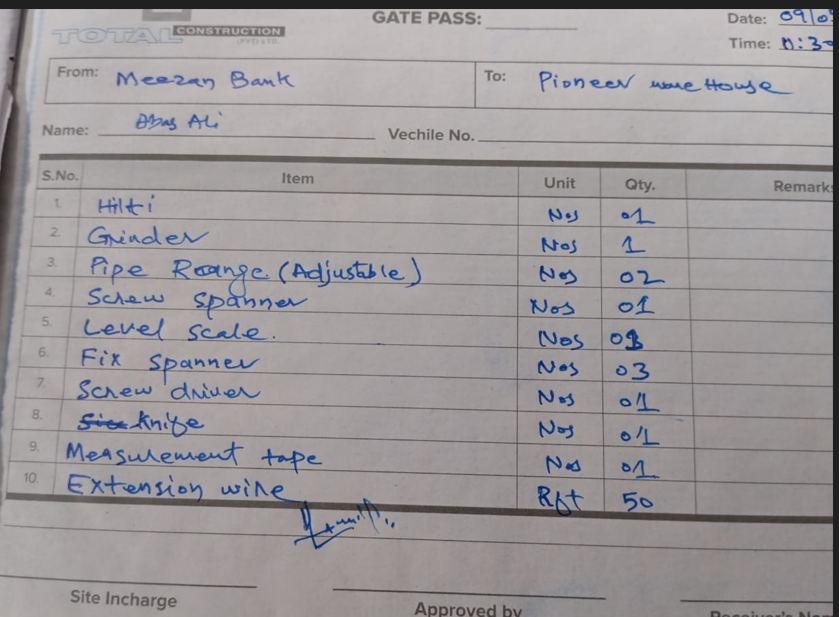 GATE PASS:
Date: 09/0
TOTAL CONSTRUCTION
(PVT) LTD.
Time: 11:3
From: Meezan Bank To: Pioneer ware House
Name: Abas Ali Vechile No.
S.No. Item Unit Qty. Remarks
1. Hilti Nos 01
2. Grinder Nos 1
3. Pipe Roange (Adjustable) Nos 02
4. Screw spanner Nos 01
5. Level scale. Nos
6. Fix spanner Nos 03
7. Screw driver Nos 01
8. Knife Nos 01
9. Measurement tape Nos 01
10. Extension wire Rft 50
Site Incharge Approved by Receiver's